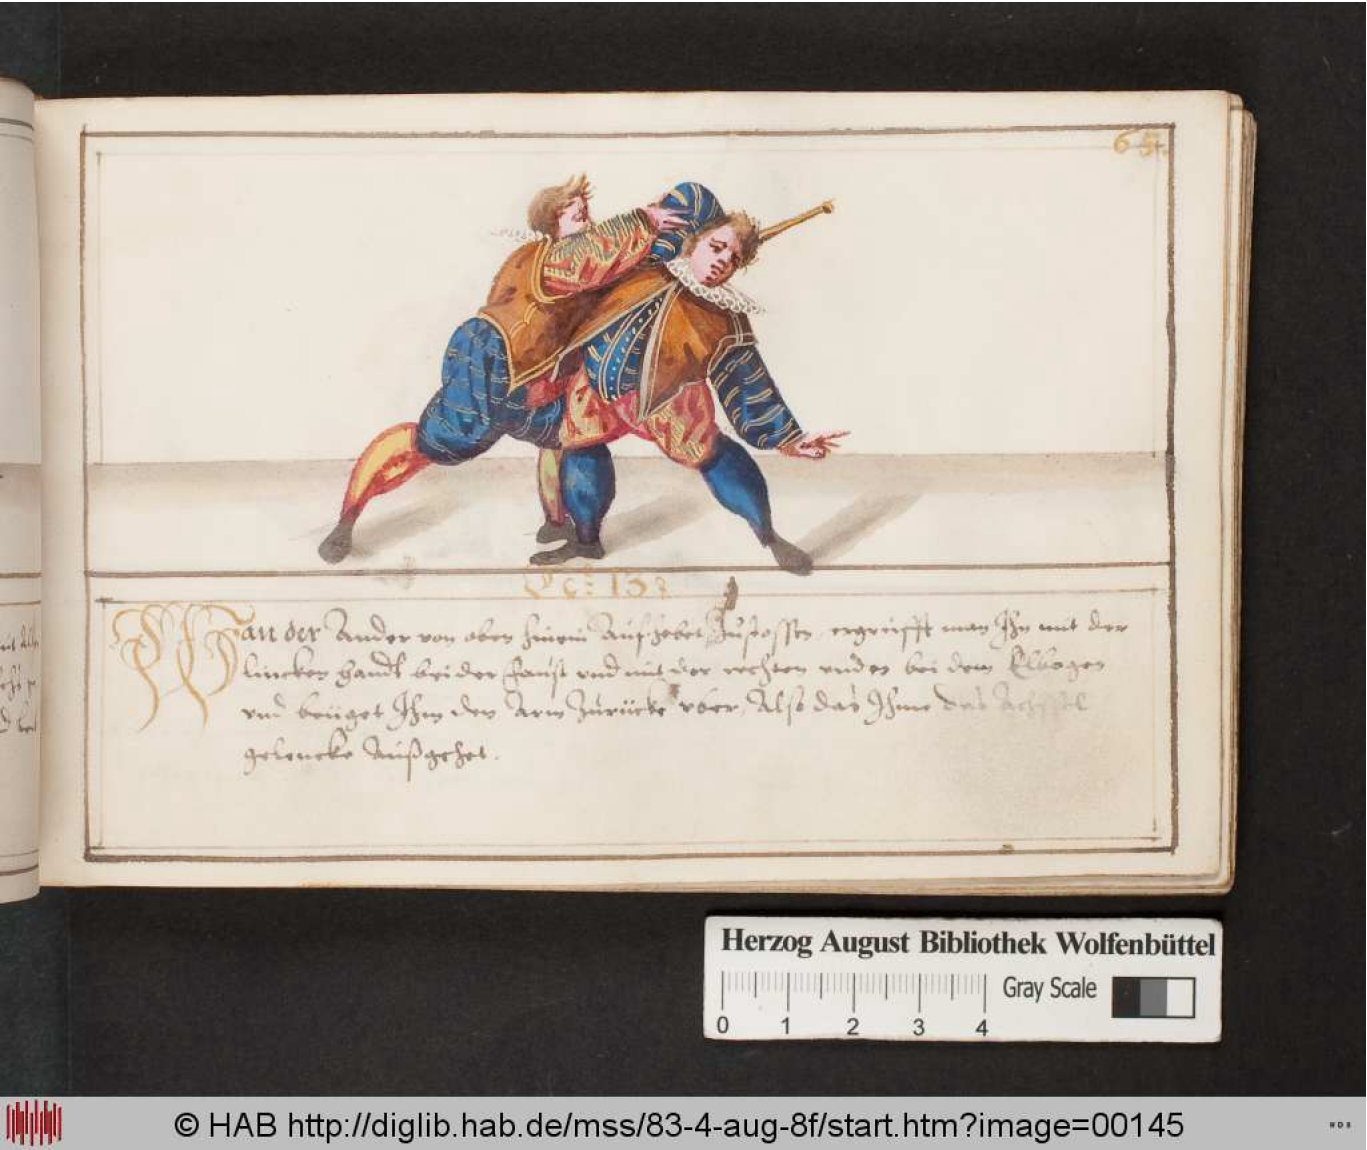 65.
13
Wan der Ander von oben hinein Aufhebet Zustossen, ergreifft man Ihn mit der
lincken handt bei der faust und mit der rechten unden bei dem Elbogen
und beüget Ihm den Arm Zurücke uber, Also das Ihme das Achssel
gelencke Außgehet.
Herzog August Bibliothek Wolfenbüttel
Gray Scale
0 1 2 3 4
© HAB http://diglib.hab.de/mss/83-4-aug-8f/start.htm?image=00145